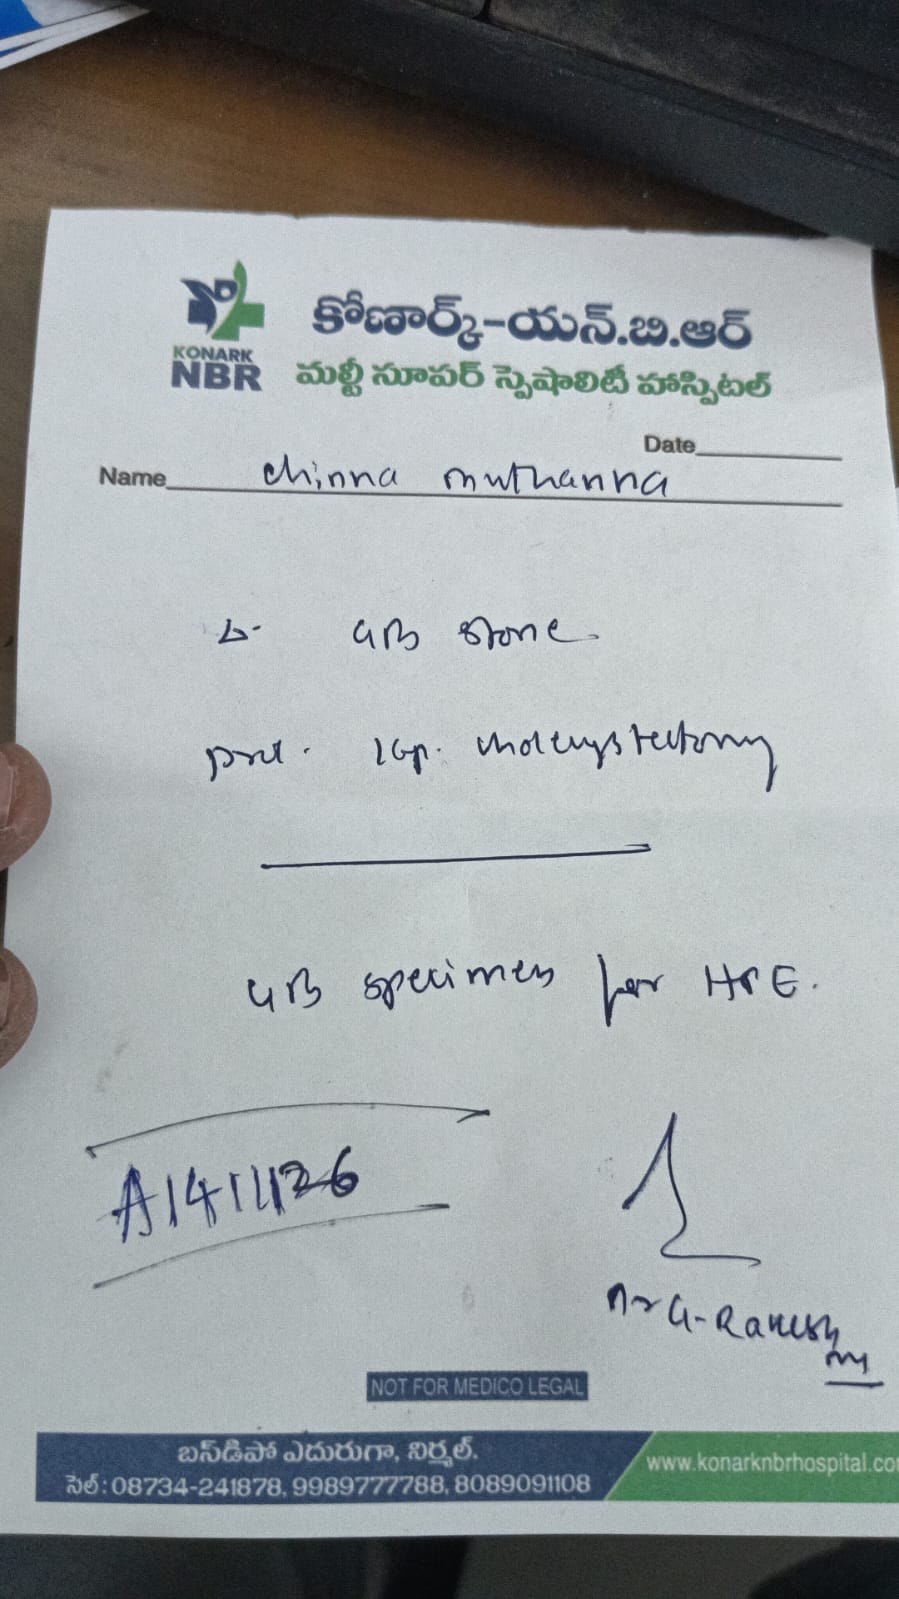 కోణార్క్-యన్.బి.ఆర్
KONARK
NBR
మల్టీ సూపర్ స్పెషాలిటీ హాస్పిటల్
Date
Name chinna muthanna
Δ· GB stone
lap. cholecystectomy
GB specimen for HPE.
A1411126
Dr G. Rakesh
NOT FOR MEDICO LEGAL
బస్‌డిపో ఎదురుగా, నిర్మల్.
సెల్ : 08734-241878, 9989777788, 8089091108
www.konarknbrhospital.co